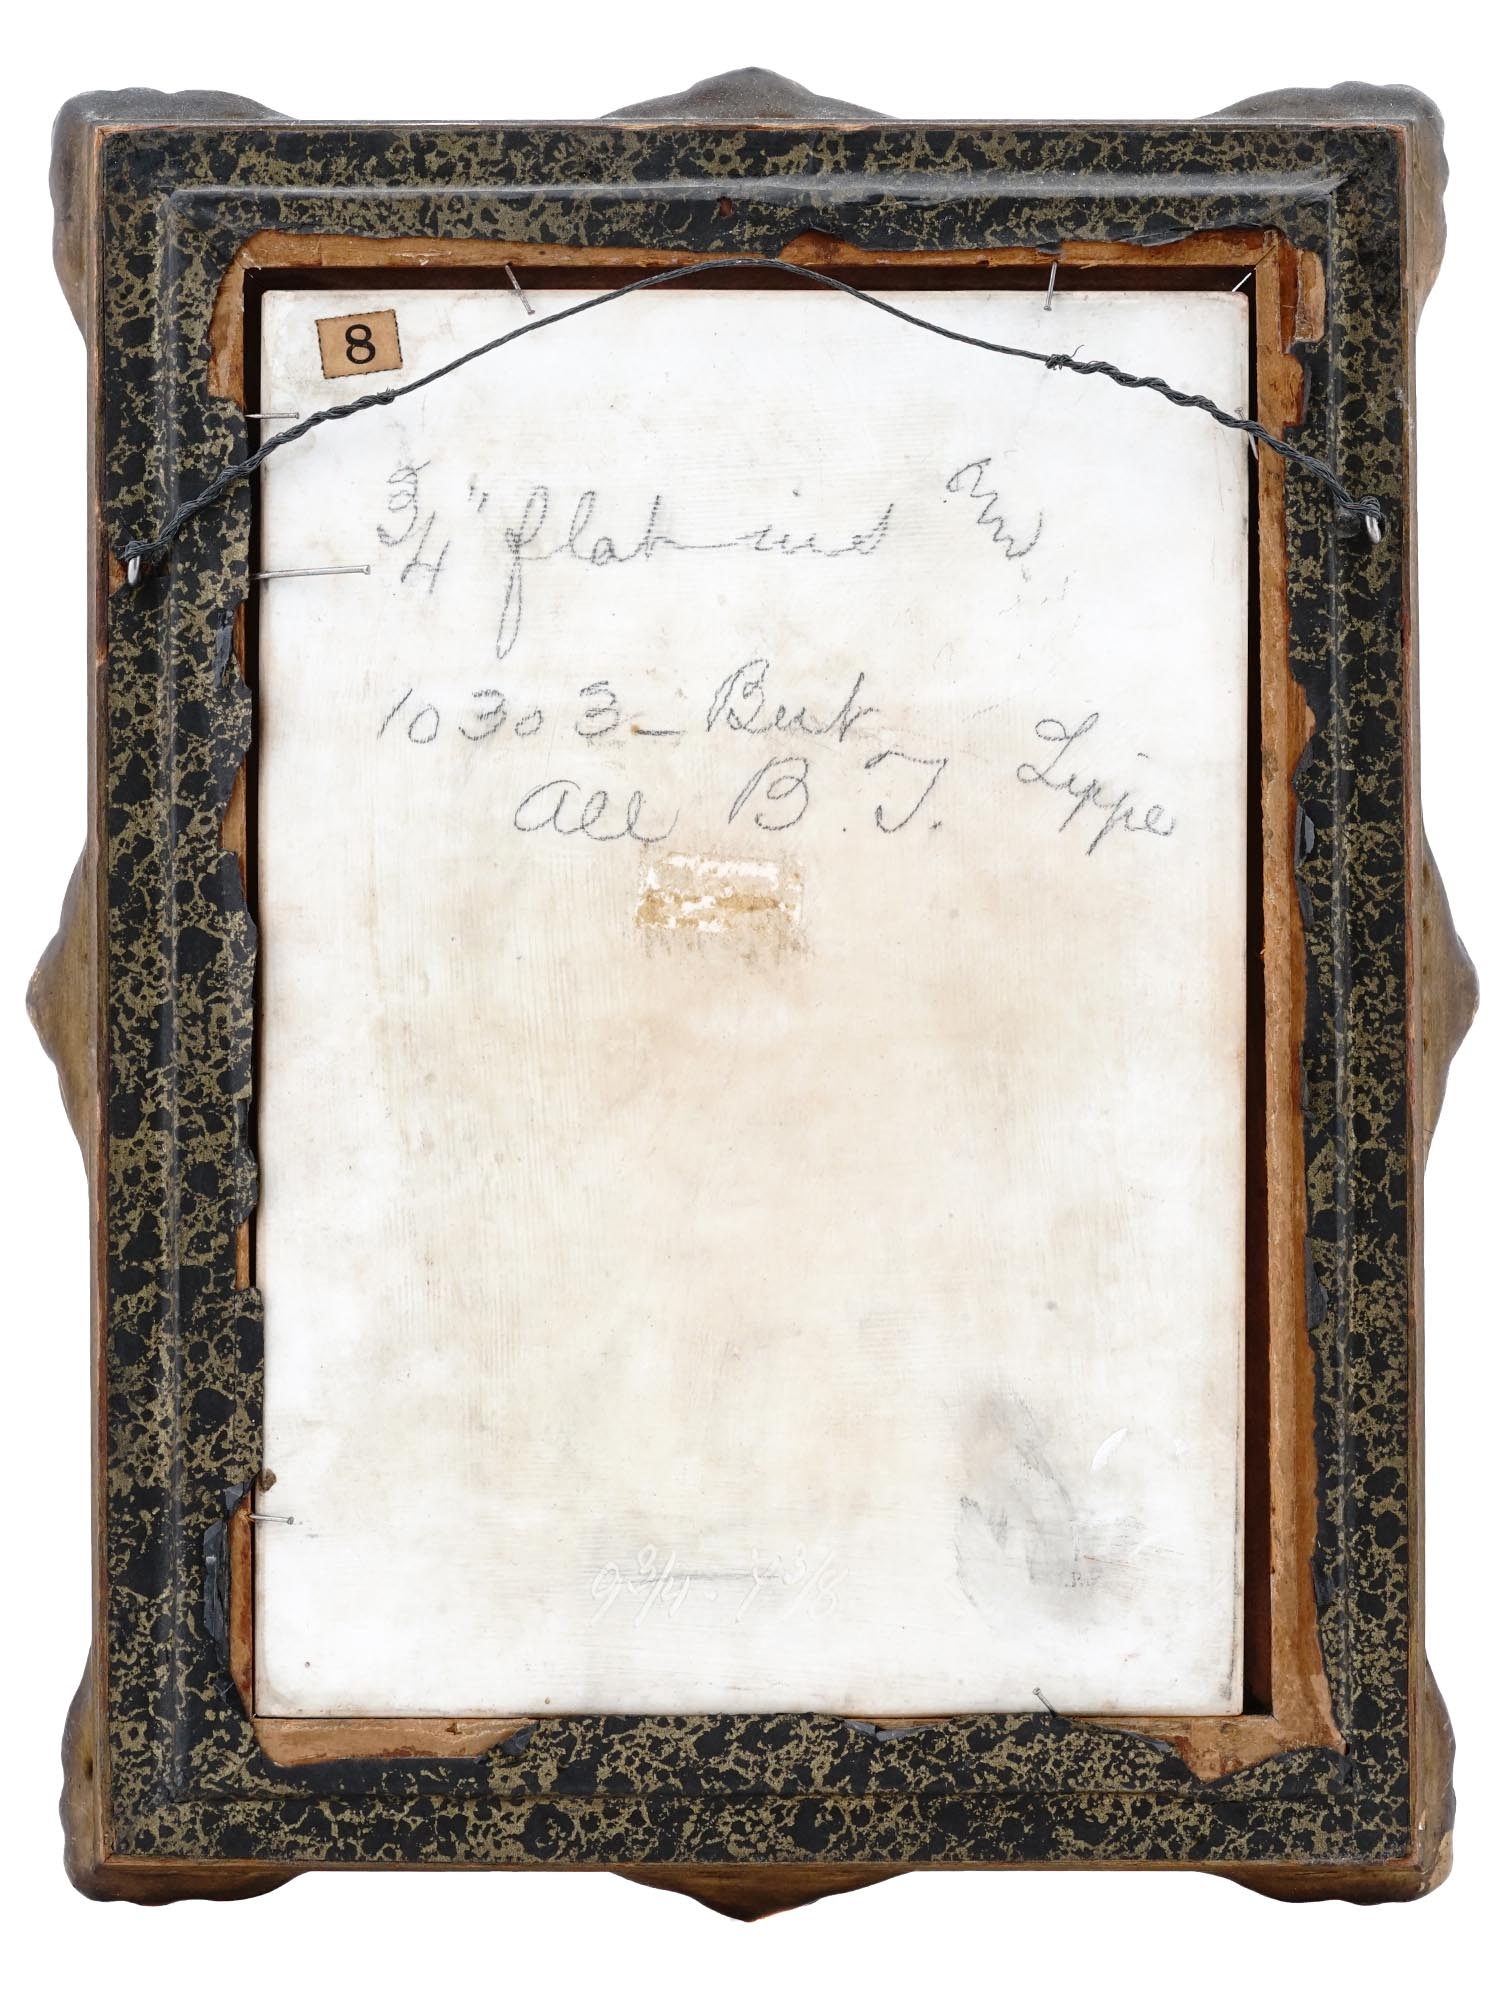 8
3/4" flat
10303 -
Lippe
All B. T.
9 3/4 · 7 3/8